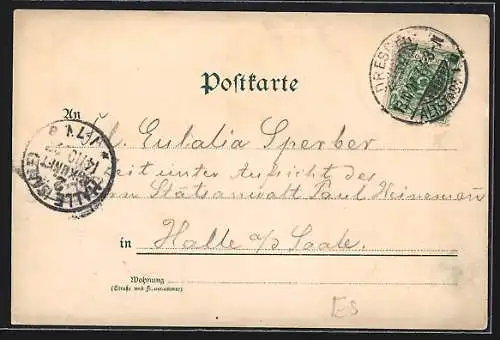 Postkarte
An
Frl. Eulalia Sperber
zeit unter Aufsicht des
Herrn Statsanwalt Paul Heineman
in Halle a/S Saale.
Wohnung
(Straße und Hausnummer)
DRESDEN
ALTSTADT
HALLE (SAALE)
ANKUNFT
ES